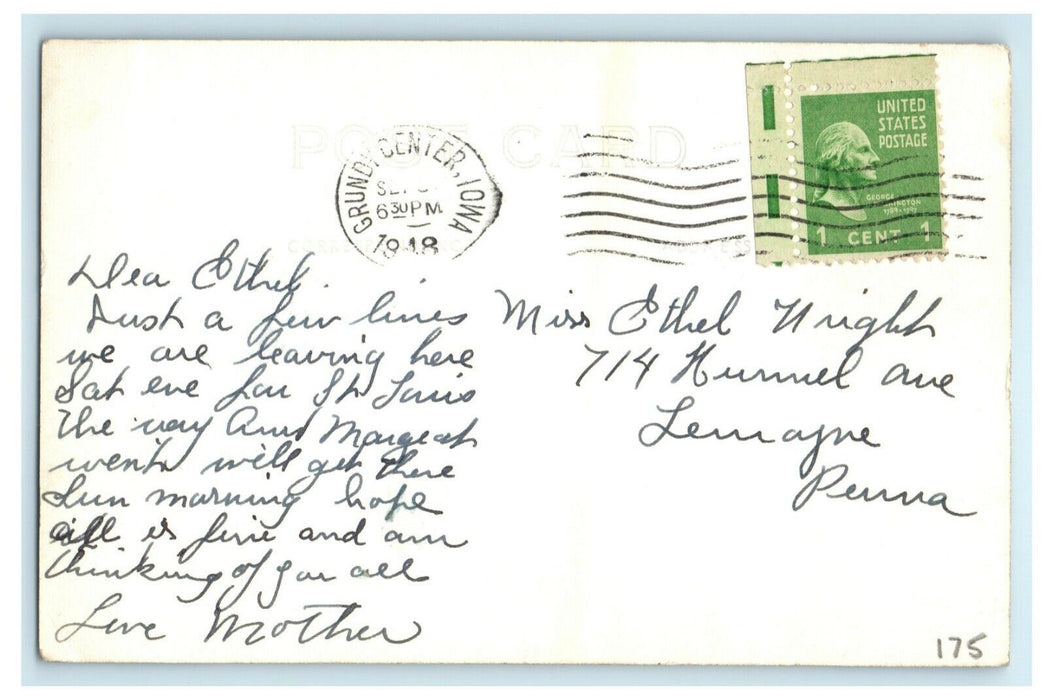 POST CARD
UNITED
STATES
POSTAGE
GEORGE
WASHINGTON
1789-1797
1 CENT 1
GRUNDY CENTER, IOWA
SEP
6 30 PM
1948
CORRESPONDENCE
ADDRESS
Dea Ethel.
Just a few lines
we are leaving here
Sat eve for St Louis
the way Ann Margeat
went will get there
Sun morning hope
all is fine and am
thinking of you all
Love Mother
Miss Ethel Wright
714 Hummel Ave
Lemoyne
Penna
175